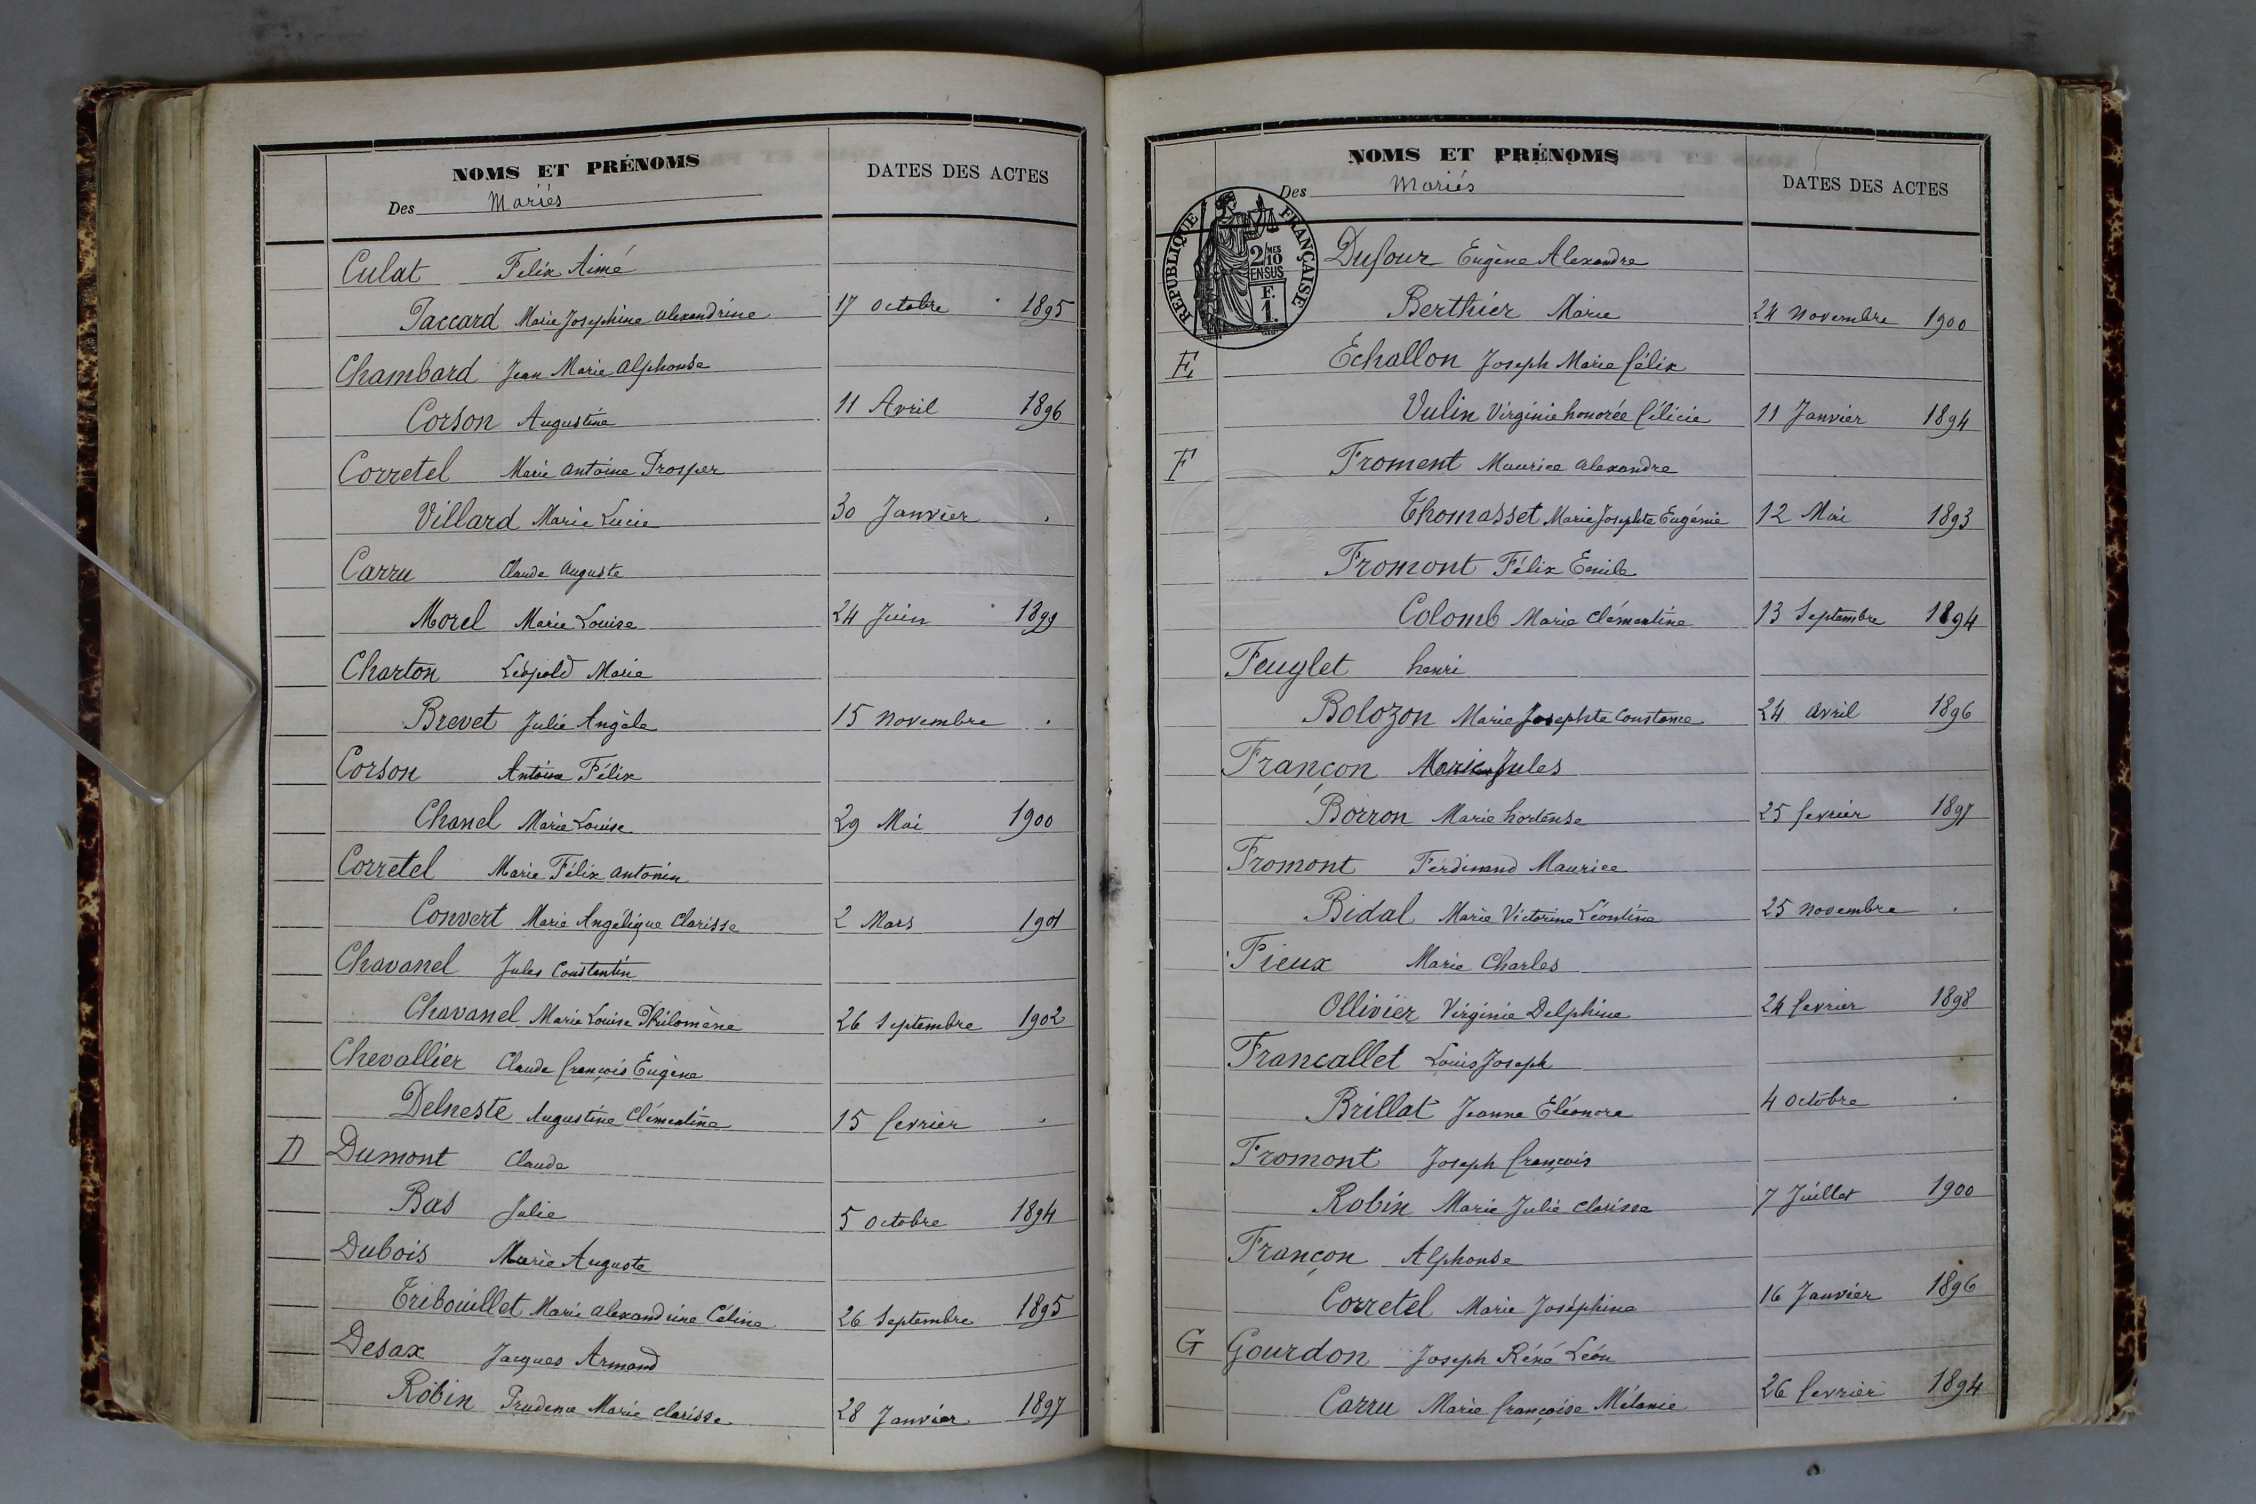 NOMS ET PRÉNOMS
DATES DES ACTES
Des Mariés
Culat Felix Aimé
Paccard Marie Josephine alexandrine 17 octobre 1895
Chambard Jean Marie alphonse
Corson Augustine 11 Avril 1896
Corretel Marie antoine Prosper
Villard Marie Lucie 30 Janvier .
Carru Claude auguste
Morel Marie Louise 24 Juin 1899
Charton Léopold Marie
Brevet Julie Angèle 15 novembre .
Corson Antoine Félix
Chanel Marie Louise 29 Mai 1900
Corretel Marie Félix antonin
Convert Marie Angélique Clarisse 2 Mars 1901
Chavanel Jules Constantin
Chavanel Marie Louise Philomène 26 Septembre 1902
Chevallier Claude françois Eugène
Delneste Augustine Clémentine 15 fevrier .
D Dumont Claude
Bas Julie 5 octobre 1894
Dubois Marie Auguste
Tribouillet Marie alexandrine Céline 26 Septembre 1895
Desax Jacques Armand
Robin Prudence Marie clarisse 28 Janvier 1897
NOMS ET PRÉNOMS
DATES DES ACTES
Des Mariés
RÉPUBLIQUE FRANÇAISE
2/10 MES
EN SUS
F.
1.
Dufour Eugène Alexandre
Berthier Marie 24 novembre 1900
E Echallon Joseph Marie félix
Vulin Virginie honorée félicie 11 Janvier 1894
F Froment Maurice alexandre
Thomasset Marie Josephte Eugénie 12 Mai 1893
Fromont Félix Emile
Colomb Marie Clémentine 13 Septembre 1894
Feuglet henri
Bolozon Marie Josephte Constance 24 avril 1896
Françon Marie Jules
Borron Marie hortense 25 fevrier 1897
Fromont Ferdinand Maurice
Bidal Marie Victorine Léontine 25 novembre .
Pieux Marie Charles
Ollivier Virginie Delphine 24 fevrier 1898
Francallet Louis Joseph
Brillat Jeanne Eléonore 4 octobre .
Fromont Joseph françois
Robin Marie Julie clarisse 7 Juillet 1900
Françon Alphonse
Corretel Marie Joséphine 16 Janvier 1896
G Gourdon Joseph Réné Léon
Carru Marie françoise Mélanie 26 fevrier 1894